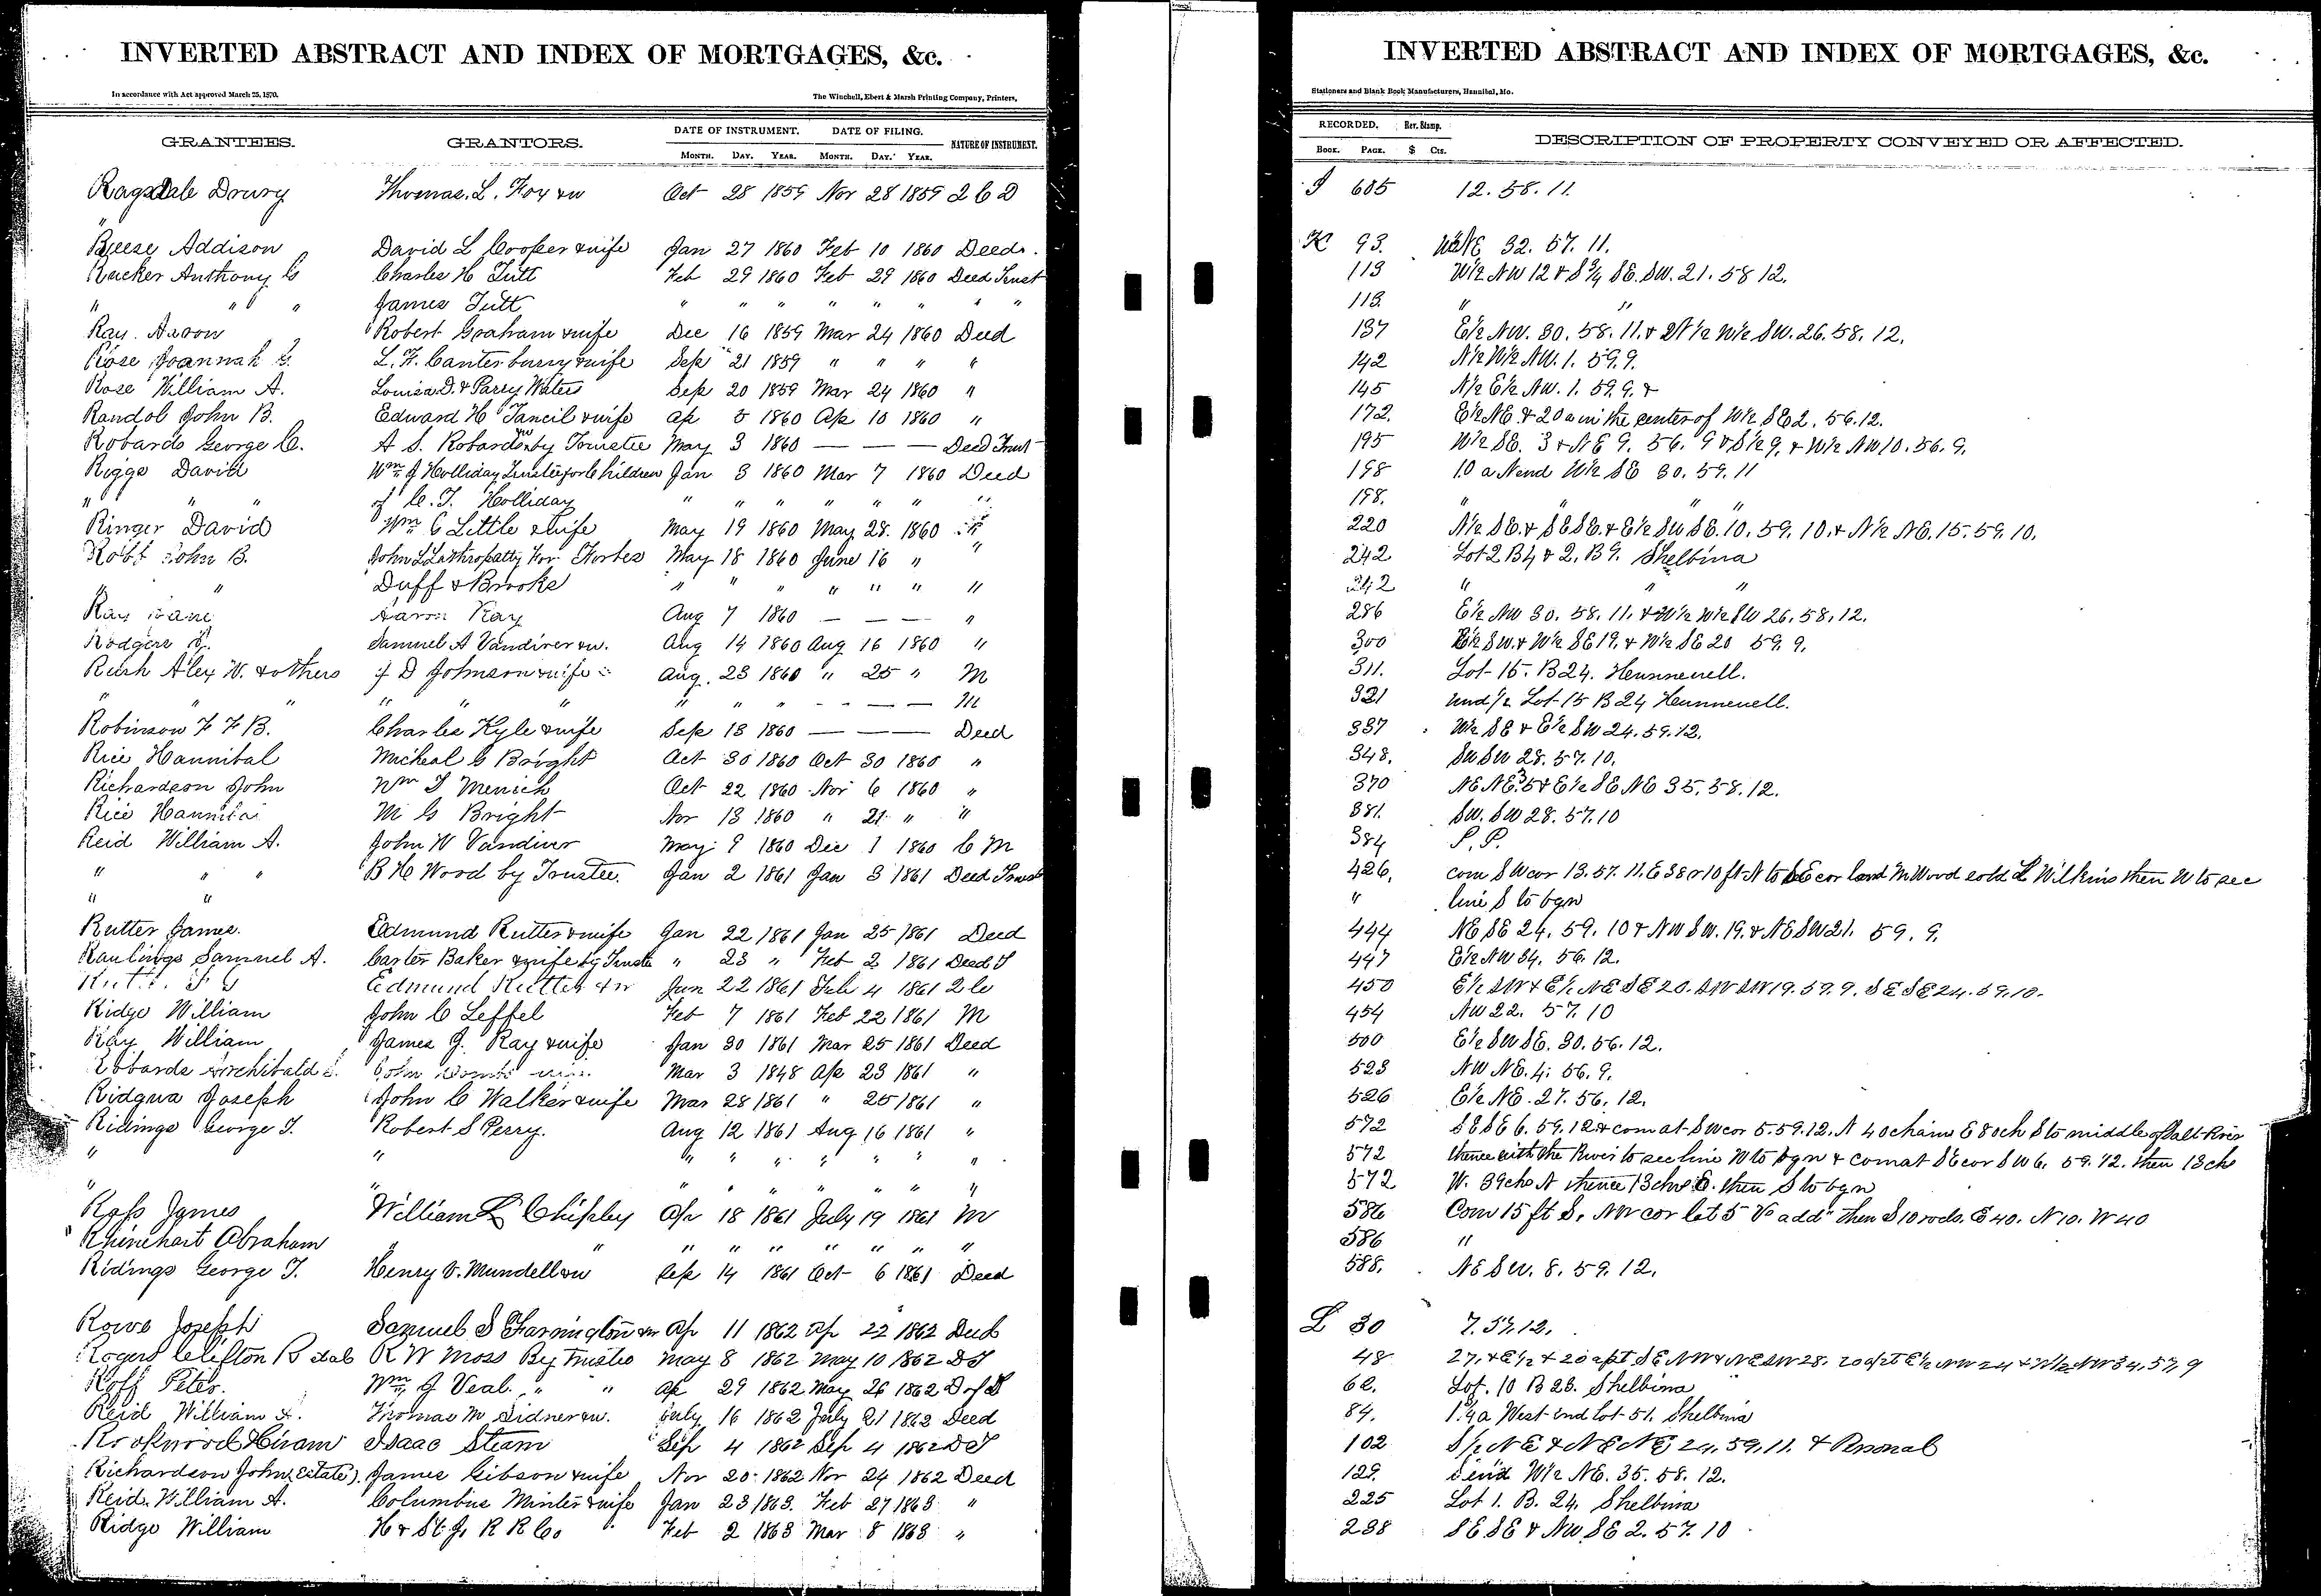 INVERTED ABSTRACT AND INDEX OF MORTGAGES, &c.
In accordance with Act approved March 25, 1870. The Winchell, Ebert & Marsh Printing Company, Printers,
GRANTEES. GRANTORS. DATE OF INSTRUMENT. DATE OF FILING. NATURE OF INSTRUMENT.
MONTH. DAY. YEAR. MONTH. DAY. YEAR.
Ragsdale Drury Thomas. L. Fox & w Oct 28 1859 Nov 28 1859 2 C D
Reese Addison David L Cooper & wife Jan 27 1860 Feb 10 1860 Deed.
Rucker Anthony C Charles H Tutt Feb 29 1860 Feb 29 1860 Deed Trust
" " " James Tutt " " " " " " " "
Ray. Aaron Robert Graham & wife Dec 16 1859 Mar 24 1860 Deed
Rose Joannah L. F. Canterburry & wife Sep 21 1859 " " " "
Rose William A. Louisa D. & Parry Waters Sep 20 1859 Mar 24 1860 "
Randol John B. Edward H Tancil & wife Ap 5 1860 Ap 10 1860 "
Robards George C. A S. Robards by Trustee May 3 1860 — — — Deed Trust
Riggs David Wm J Holliday Trustee for Children Jan 3 1860 Mar 7 1860 Deed
" " " of C. T. Holliday " " " " " " "
Ringer David Wm C Little & wife May 19 1860 May 28. 1860 "
Robt John B. John L Lathrop atty for Forbes May 18 1860 June 16 " "
" Duff & Brooks " " " " " " "
Ray Jane Aaron Ray Aug 7 1860 — — — "
Rodgers Samuel A Vandiver & w. Aug 14 1860 Aug 16 1860 "
Rush Alex W. & others J D Johnson & wife Aug. 23 1860 " 25 " M
" " " " " " " " - - — — M
Robinson F F B. Charles Kyle & wife Sep 13 1860 — — — Deed
Rice Hannibal Micheal G Bright Oct 30 1860 Oct 30 1860 "
Richardson John Wm T Minich Oct 22 1860 Nov 6 1860 "
Rice Hannibal M G Bright Nov 13 1860 " 21 " "
Reid William A. John W Vandiver May 9 1860 Dec 1 1860 C M
" " " B H Wood by Trustee. Jan 2 1861 Jan 3 1861 Deed Trust
" "
Rutter James. Edmund Rutter & wife Jan 22 1861 Jan 25 1861 Deed
Raulings Samuel A. Carter Baker & wife by Trustee " 23 " Feb 2 1861 Deed T
Edmund Rutter & w Jan 22 1861 Feb 4 1861 2 C
Ridge William John C Leffel Feb 7 1861 Feb 22 1861 M
Ray William James J. Ray & wife Jan 30 1861 Mar 25 1861 Deed
Robards Archibald S. John Mar 3 1848 Ap 23 1861 "
Ridgwa Joseph John C Walker & wife Mar 28 1861 " 25 1861 "
Ridings George T. Robert S Perry. Aug 12 1861 Aug 16 1861 "
" " " " " " " " "
" " " " " " " " "
Ross James William L Chipley Ap 18 1861 July 19 1861 M
Rhinehart Abraham " " " " " " " " "
Ridings George T. Henry V. Mundell & w Sep 14 1861 Oct 6 1861 Deed
Rowe Joseph Samuel S Farrington & w Ap 11 1862 Ap 22 1862 Deed
Rogers Clifton B & al R W Moss By Trustee May 8 1862 May 10 1862 D T
Roff Peter. Wm J Veal. " " Ap 29 1862 May 26 1862 D of T
Reid William A. Thomas M Sidner & w. July 16 1862 July 21 1862 Deed
Rookwood Hiram Isaac Stearn Sep 4 1862 Sep 4 1862 D T
Richardson John (Estate). James Gibson & wife Nov 20 1862 Nov 24 1862 Deed
Reid. William A. Columbus Minter & wife Jan 23 1863. Feb 27 1863 "
Ridge William H & St J. R R Co Feb 2 1863 Mar 8 1863 "
INVERTED ABSTRACT AND INDEX OF MORTGAGES, &c.
Stationers and Blank Book Manufacturers, Hannibal, Mo.
RECORDED. Rev. Stamp. DESCRIPTION OF PROPERTY CONVEYED OR AFFECTED.
BOOK. PAGE. $ Cts.
J 605 12. 58. 11.
K 93. W½ NE 32. 57. 11.
113 W½ NW 12 & S¾ SE. SW. 21. 58 12.
113. " "
137 E½ NW. 30. 58. 11. & N½ W½ SW. 26. 58. 12.
142 N½ W½ NW. 1. 59. 9.
145 N½ E½ NW. 1. 59. 9. &
172. E½ NE & 20 a in the center of W½ SE 2. 56. 12.
195 W½ SE. 3 & NE 9. 56. 9 & S½ 9, & W½ NW 10. 56. 9.
198 10 a N end W½ SE 30. 59. 11
198. " " " "
220 N½ SE. & SE SE. & E½ SW SE. 10. 59. 10. & N½ NE. 15. 59. 10.
242 Lot 2 B 4 & 2. B 9. Shelbina
242 " " "
286 E½ NW 30. 58. 11. & W½ W½ SW 26. 58. 12.
300 E½ SW. & W½ SE 19. & W½ SE 20 59. 9.
311. Lot 15. B 24. Hunnewell.
321 und ½ Lot 15 B 24 Hunnewell.
337 W½ SE & E½ SW 24. 59. 12.
348. SW SW 28. 57. 10.
370 NE NE 35 & E½ SE NE 35. 58. 12.
381. SW. SW 28. 57. 10
384 P. P.
426. com SW cor 13. 57. 11. E 38 r 10 ft N to SE cor land M Wood sold L Wilkins then W to sec
" line S to bgn
444 NE SE 24. 59. 10 & NW SW. 19. & NE SW 21. 59. 9.
447 E½ NW 34. 56. 12.
450 E½ SW & E½ NE SE 20. SW SW 19. 59. 9. SE SE 24. 59. 10.
454 NW 22. 57. 10
500 E½ SW SE. 30. 56. 12.
523 NW NE. 4. 56. 9.
526 E½ NE. 27. 56. 12.
572 SE SE 6. 59. 12 & com at SW cor 5. 59. 12. N 40 chains E 80 ch S to middle of Salt River
572 thence with the River to sec line W to bgn & com at SE cor SW 6. 59. 12. then 13 chs
572 W. 39 chs N thence 13 chs E. then S to bgn
586 Com 15 ft S. NW cor lot 5 Vs add" then S 10 rods. E 40. N 10. W 40
586 "
588. NE SW. 8. 59. 12.
L 30 7. 57. 12.
48 27. & E½ & 20 a pt SE NW & NE SW 28. 20 a pt E½ NW 24 & W½ NW 34. 57. 9
62. Lot. 10 B 26. Shelbina
84. 1¾ a West end Lot 51. Shelbina
102 S½ NE & NE NE 24. 59. 11. & Personal
129. S end W½ NE. 35. 58. 12.
225 Lot 1. B. 24. Shelbina
238 SE SE & NW SE 2. 57. 10